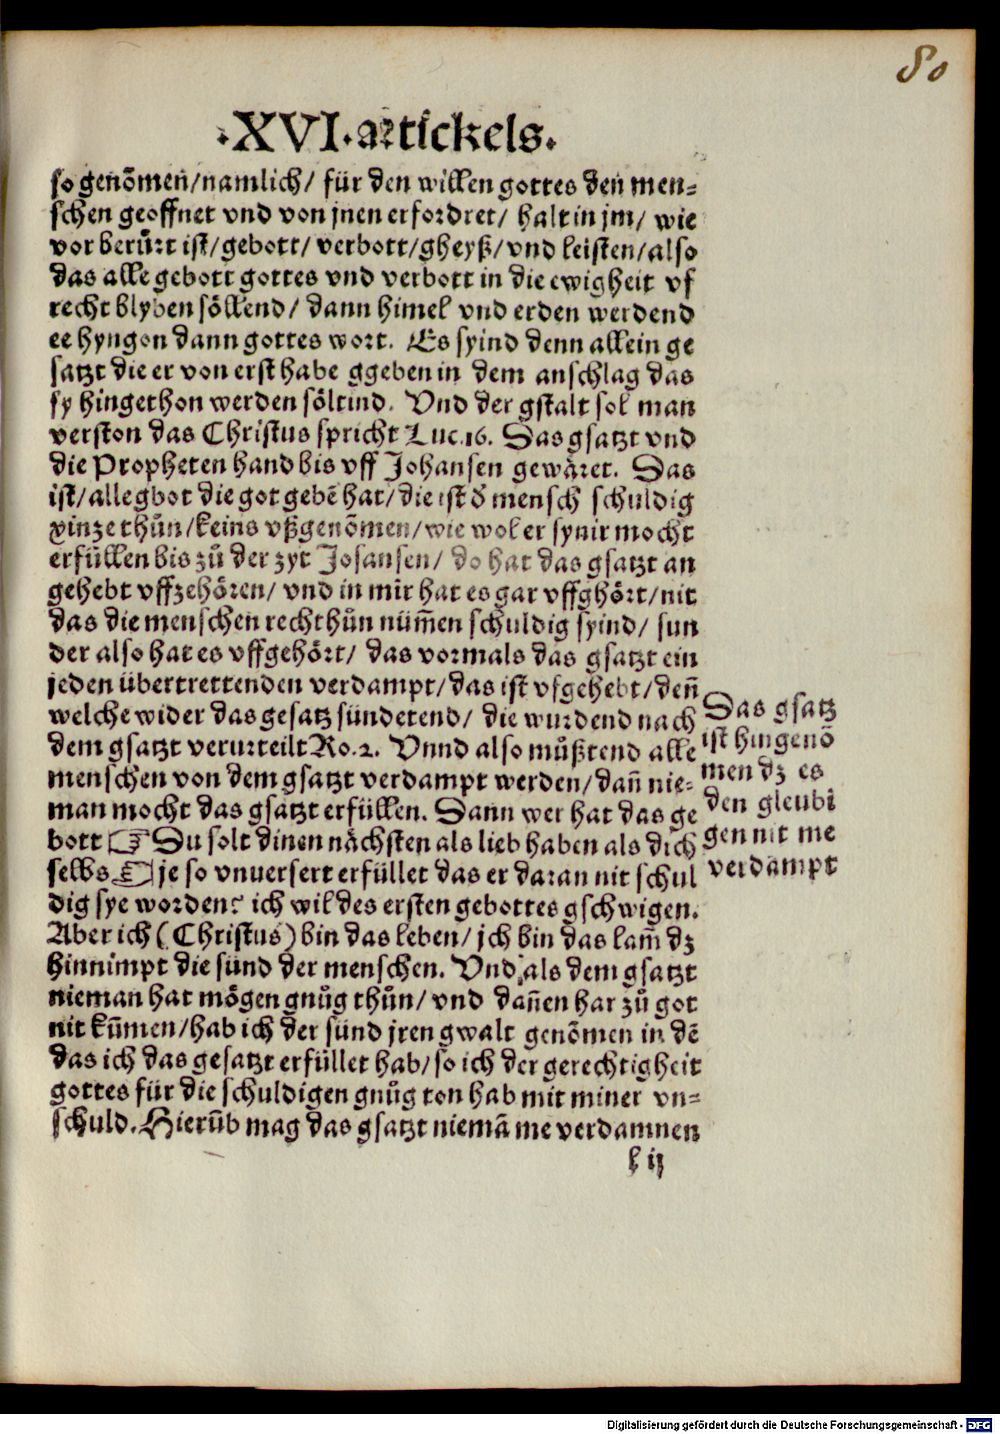 80
·XVI· artickels.
so genõmen/namlich/ für den willen gottes den men-
schen geoffnet vnd von jnen erfordret/ halt in jm/ wie
vor berürt ist/gebott/ verbott/gheyß/vnd leisten/also
das alle gebott gottes vnd verbott in die ewigheit vf
recht blyben söllend/ dann himel vnd erden werdend
ee hyngon dann gottes wort. Es syind denn allein ge
satzt die er von erst habe ggeben in dem anschlag das
sy hingethon werden söltind. Vnd der gstalt sol man
verston das Christus spricht Luc.16. Das gsatzt vnd
die Propheten hand bis vff Johansen gewäret. Das
ist/alle gbot die got gebẽ hat/die ist d̕ mensch schuldig
xin ze thůn/keins vßgenõmen/wie wol er sy nir mocht
erfüllen bis zů der zyt Josansen/ do hat das gsatzt an
gehebt vffzehören/ vnd in mir hat es gar vffghört/nit
das die menschen recht hůn nüm̃en schuldig syind/ sun
der also hat es vffgehört/ das vormals das gsatzt ein
jeden übertrettenden verdampt/das ist vfgehebt/deñ
welche wider das gesatz sündetend/ die wurdend nach
dem gsatzt verurteilt Ro.2. Vnnd also müßtend alle
menschen von dem gsatzt verdampt werden/dañ nie-
man mocht das gsatzt erfüllen. Dann wer hat das ge
bott ☞ Du solt dinen nächsten als lieb haben als dich
selbs ☜ je so vnuersert erfüllet das er daran nit schul
dig sye worden? ich wil des ersten gebottes gschwigen.
Aber ich (Christus) bin das leben/ jch bin das lam̃ dz
hinnimpt die sünd der menschen. Vnd als dem gsatzt
nieman hat mögen gnůg thůn/ vnd dañen har zů got
nit kum̃en/hab ich der sünd jren gwalt genõmen in dẽ
das ich das gesatzt erfüllet hab/so ich der gerechtigheit
gottes für die schuldigen gnůg ton hab mit miner vn-
schuld. Hierũb mag das gsatzt niemã me verdamnen
l ij
Das gsatz
ist hingenõ
men dz es
den gleubi
gen nit me
verdampt
Digitalisierung gefördert durch die Deutsche Forschungsgemeinschaft - DFG